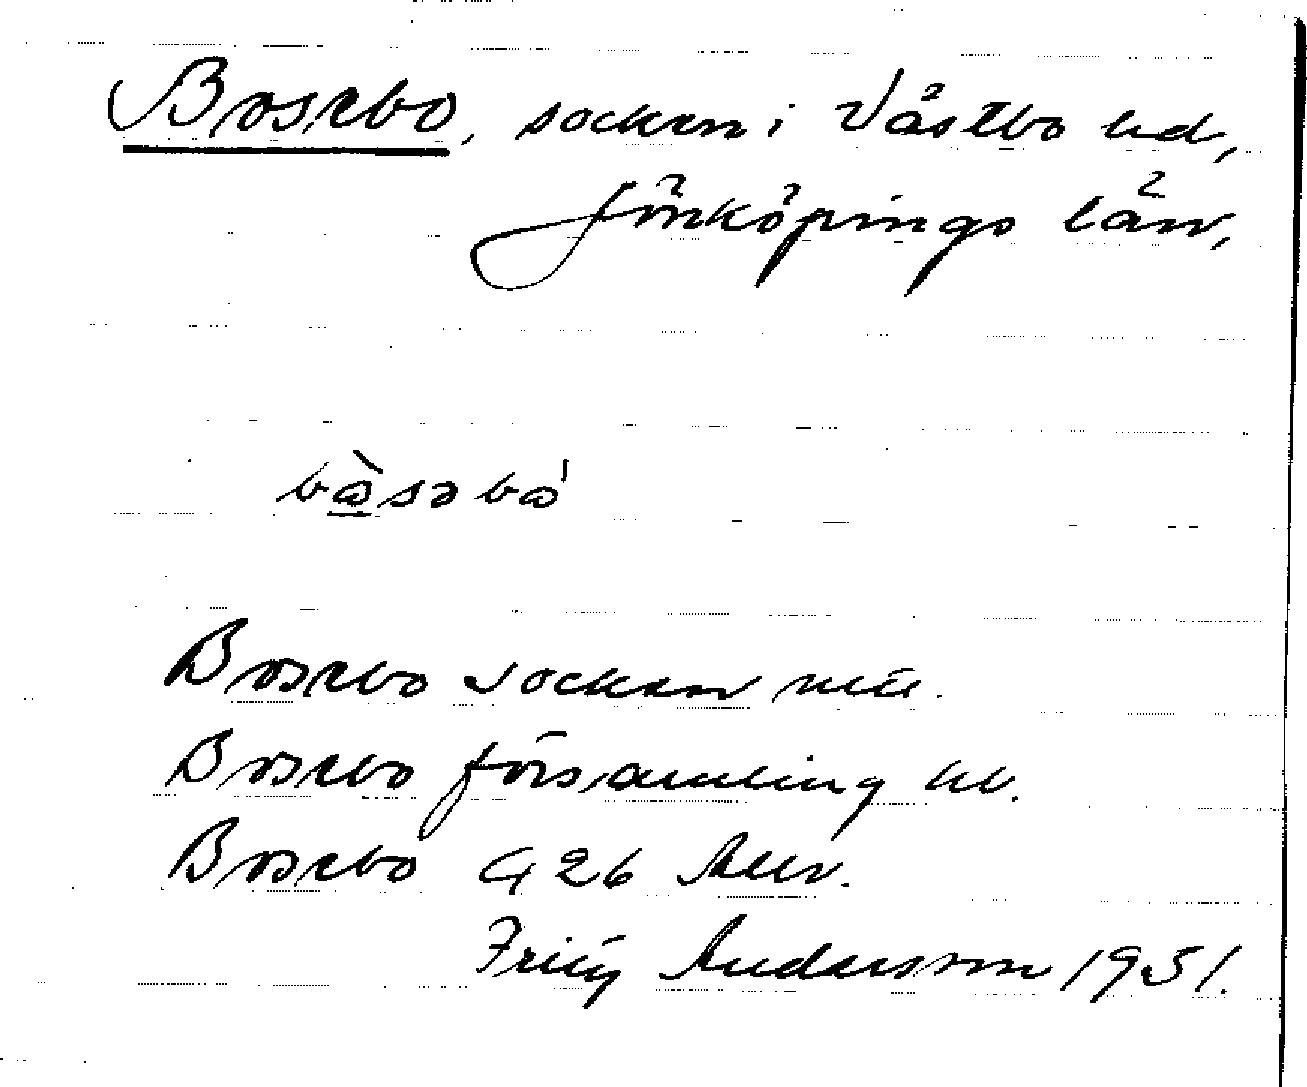 Bosebo, socken i Västbo hd,
Jönköpings län,
bòsəbó
Bosebo socken
Bosebo församling
Bosebo 426
Andersson 1951.